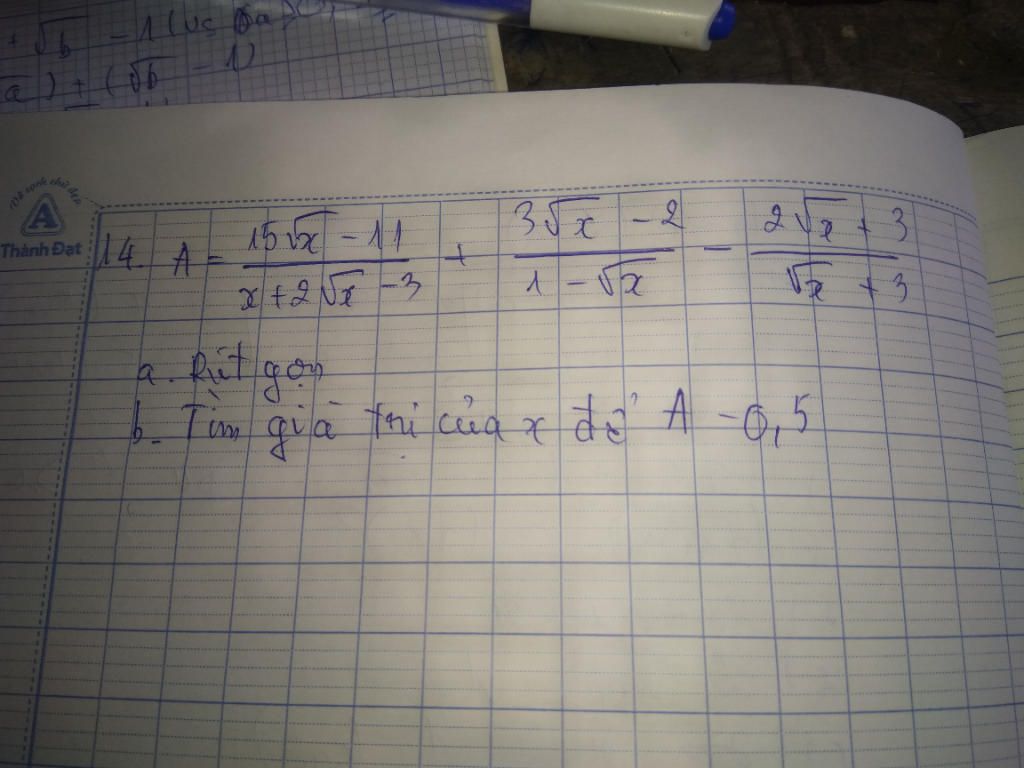 + √b - 1
a) + (√b - 1)
Vở sạch chữ đẹp
A
Thành Đạt
14. A = (15√x - 11)/(x + 2√x - 3) + (3√x - 2)/(1 - √x) - (2√x + 3)/(√x + 3)
a. Rút gọn
b. Tìm giá trị của x để A - 0,5